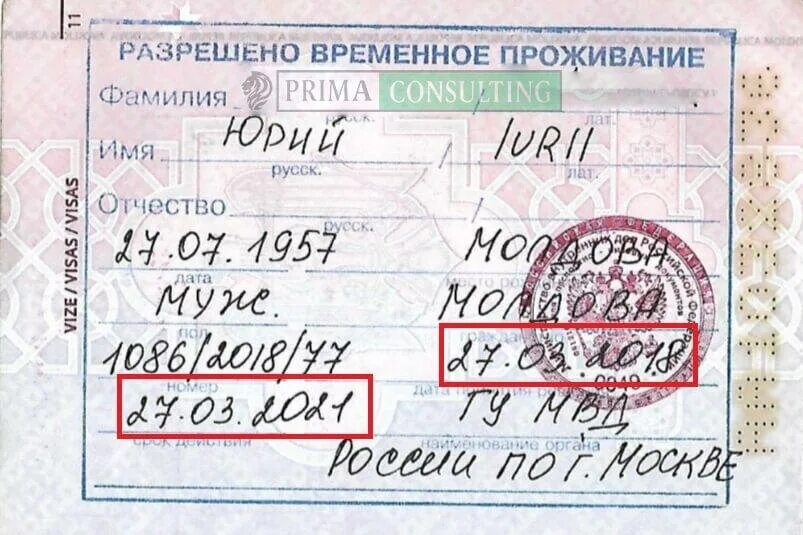 11
РАЗРЕШЕНО ВРЕМЕННОЕ ПРОЖИВАНИЕ
PRIMA CONSULTING
Фамилия
русск. лат.
ЮРИЙ IURII
Имя
русск. лат.
Отчество
27.07.1957 МОЛДОВА
дата место рождения
МУЖ. МОЛДОВА
пол гражданство
1086/2018/77 27.03.2018
номер дата принятия решения
27.03.2021 ГУ МВД
срок действия наименование органа
РОССИИ ПО Г. МОСКВЕ
VIZE / VISAS / VISAS